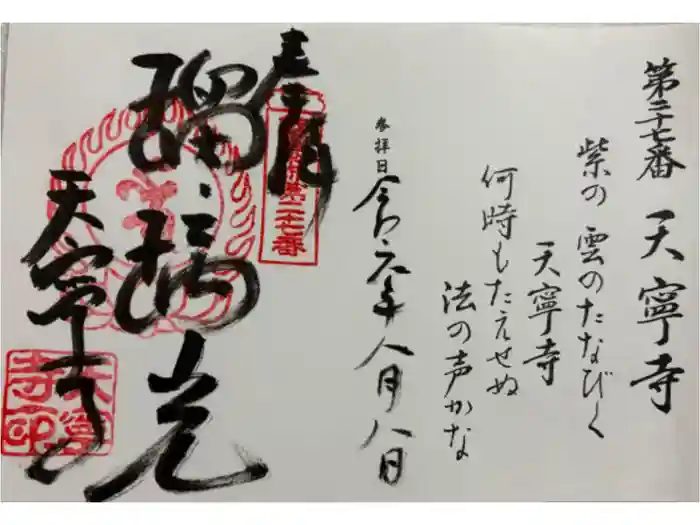 第二十七番 天寧寺
紫の雲のたなびく
天寧寺
何時もたえせぬ
法の声かな
参拝日 令和元年八月八日
奉拝
第二十七番
瑠璃光
天寧寺
天寧寺印